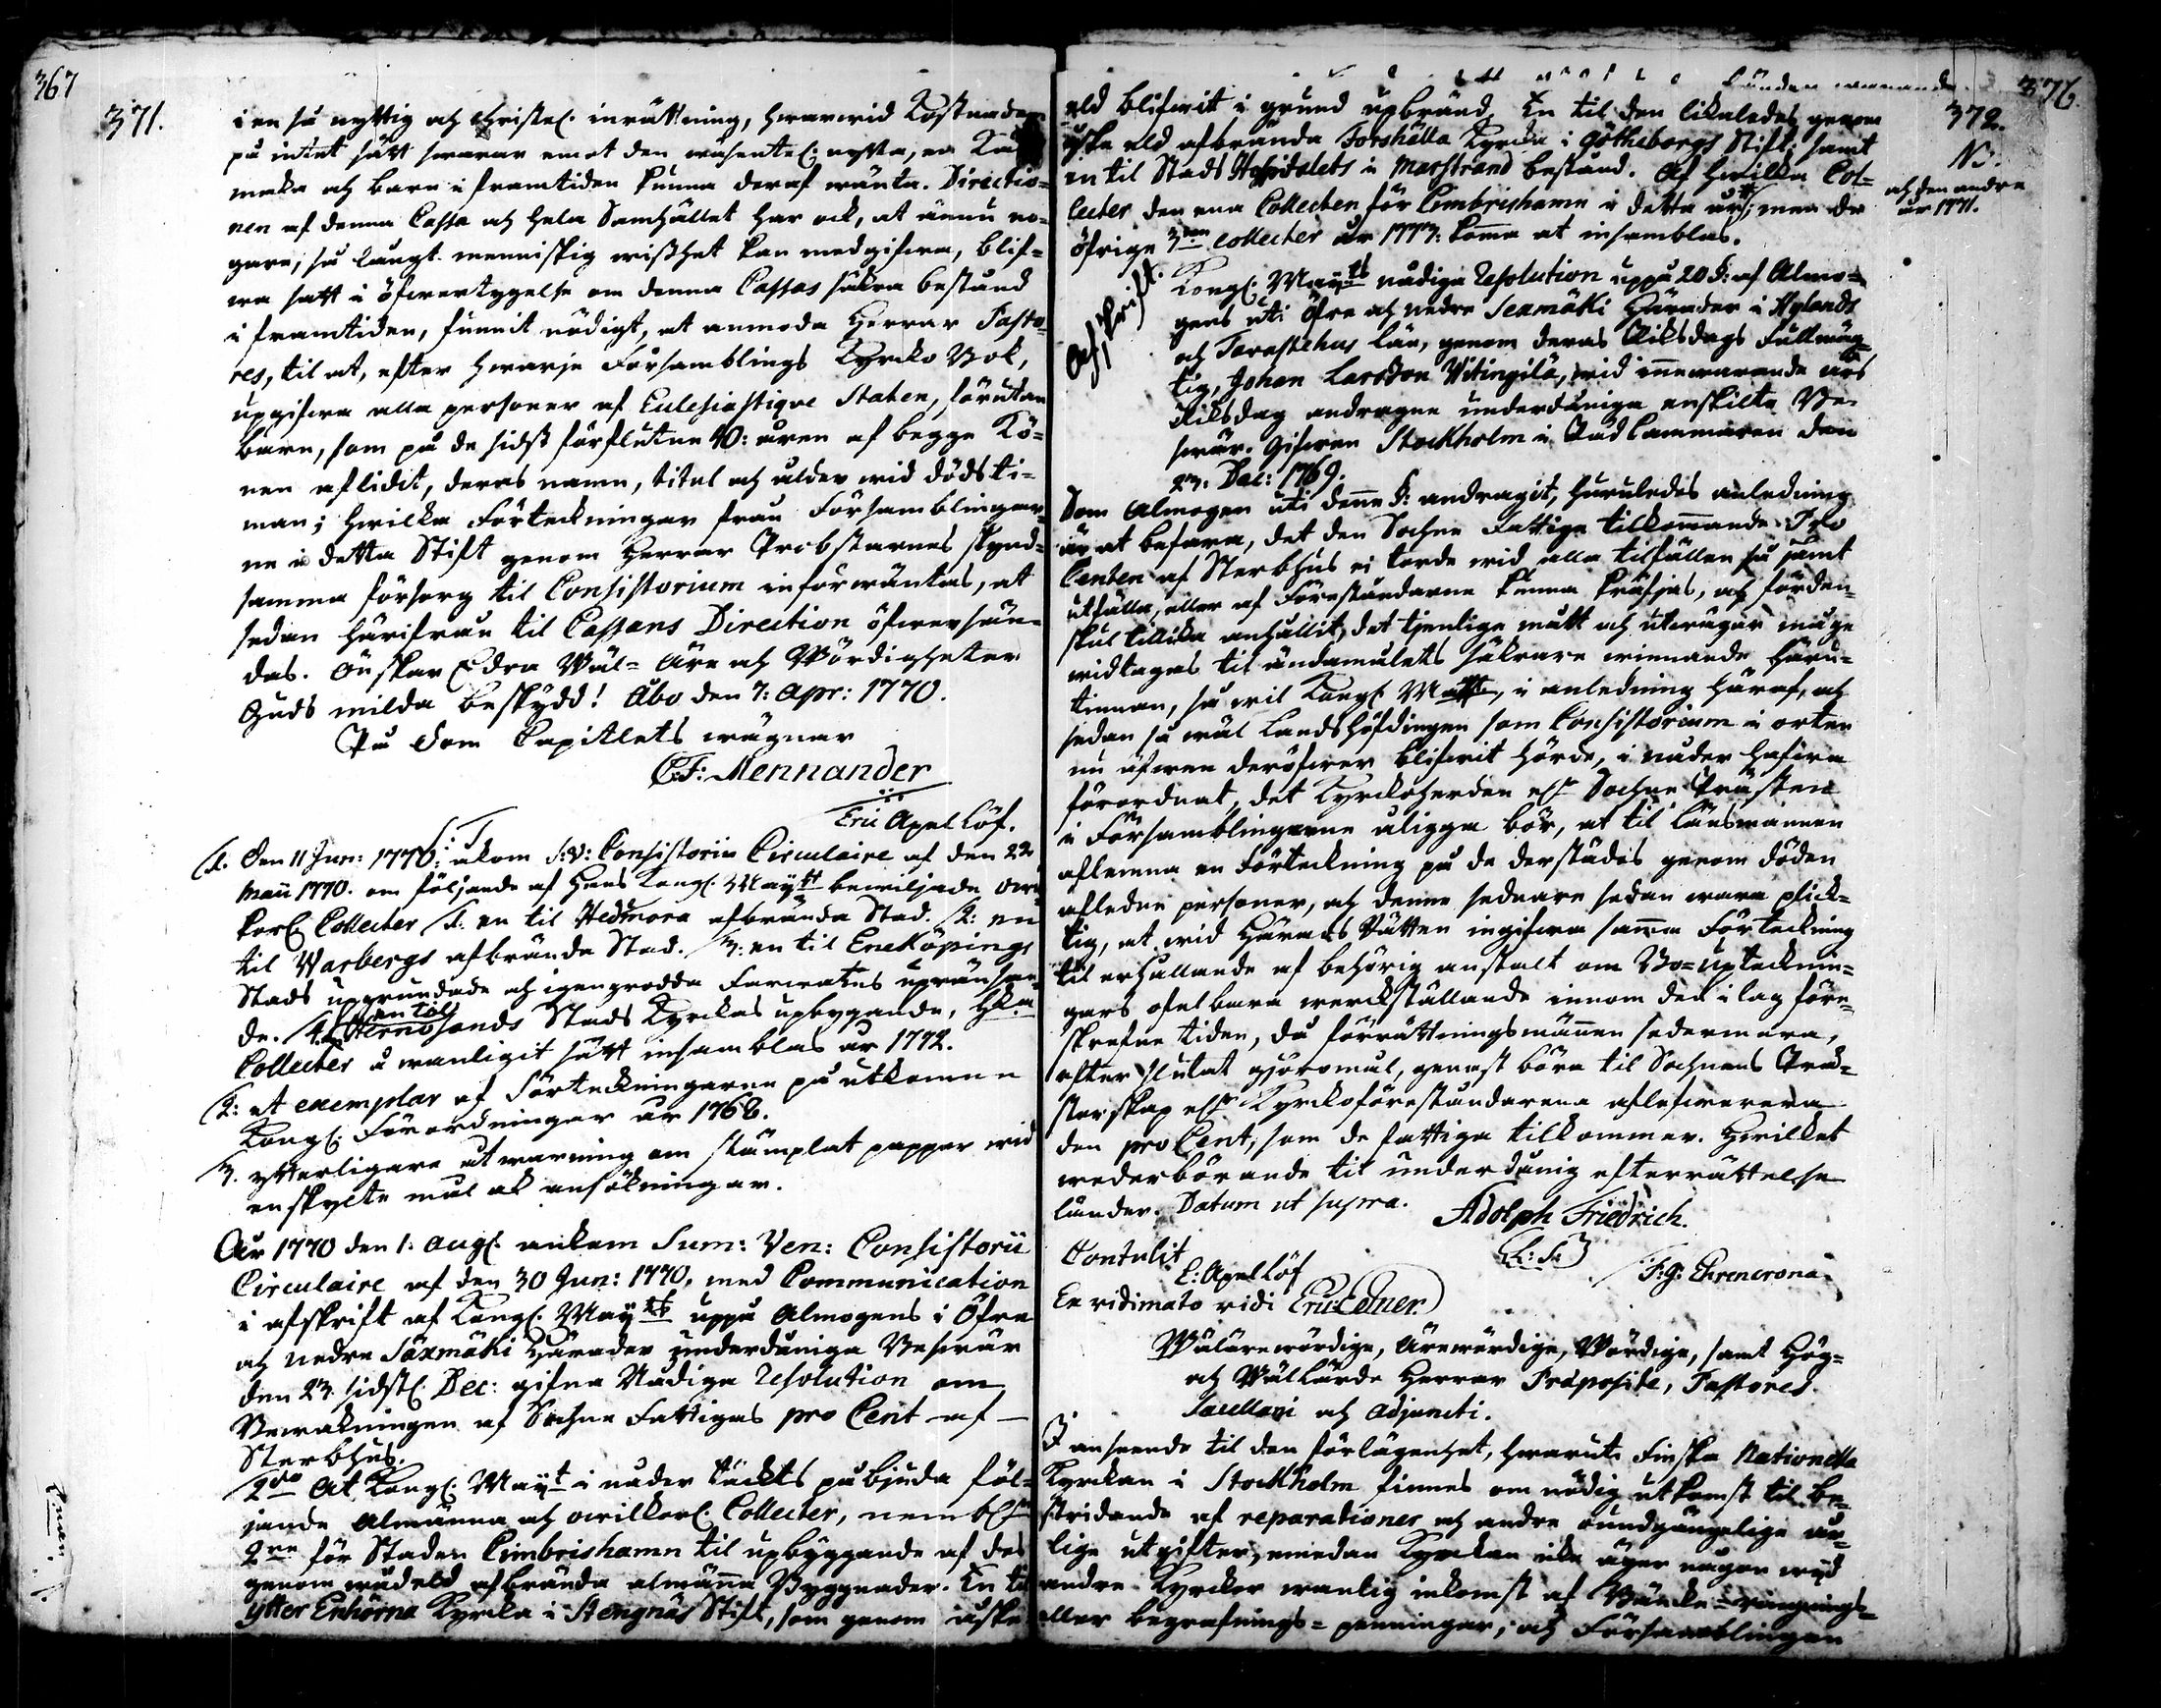 367
371.
i en så nyttig och christel. inrättning, hwarwid Kostnaden
på intet sätt swarar emot den wäsentel. nytta, en
maka och barn i framtiden kunna deraf wänta. Directio=
nen af denna Cassa och hela Samhället har ock, at ännu no=
gare, så långt menniskig wisshet kan medgifwa, blif=
wa satt i öfwertygelse om denna Cassas säkra bestånd
i framtiden, funnit nödigt, at anmoda Herrar Pasto=
res, til at, efter hwarje Församblings Kyrko Bok,
upgifwa alla personer af Eclesiastique Staten, förutan
barn, som på de sidst förflutne 10: åren af begge Kö=
nen aflidit, deras namn, titel och ålder wid dödsti=
man; hwilka Förteckningar från Församblingar=
ne i detta Stift genom Herrar Probstarnes skynd=
samma försorg til Consistorium införwäntas, at
sedan härifrån til Cassans Direction öfwersän=
das. Önskar Edra Wäl= Äre och Wördigheter
Guds milda beskydd! Åbo den 7: Apr: 1770.
På Dom Capitlets wägnar
C.F: Mennander
Eric Apellöf.
1. Den 11 Jun: 1770: ankom S:V: Consistorii Circulaire af den 22
Maii 1770. om följande af Hans Kongl. Maytt bewiljade wil
korl. Collecter 1. en til Hedmora afbrända Stad. 2: en
til Warbergs afbrända Stad. 3. en til Eneköpings
Stads upgrundade och igengrodda Farwatns upränsan=
de. 4. en til Hernösands Stads Kyrkas upbygande, hka
Collecter å wanligit sätt insamblas år 1772.
2: et exemplar af Förteckningarne på utkomne
Kongl. Förordningar år 1768.
3. ytterligare åtwarning om stämplat papper wid
enskylte mål ok ansökningar.
Åhr 1770 den 1. Aug. ankom Sum: Ven: Consistorii
Circulaire af den 30 Jun: 1770, med Communication
i afskrift af Kongl. Mayts uppå Almogens i Öfre
och nedre Säxmäki Härader underdåniga Beswär
den 23. sidstl. Dec: gifna Nådiga Resolution om
Bewakningen af Sochne Fattigas pro Cent af
Sterbhus.
2do At Kongl. Mayt i nåder täckts påbjuda föl=
jande Almänna och wilkorl. Collecter, nembl.
2ne för Staden Cimbrishamn til upbyggande af des
genom wådeld afbrända almänna Byggnader. En til
ytter Enhörna Kyrcka i Stengnäs Stift, som genom åske
376.
372.
N3.
och den andre
år 1771.
eld blifwit i grund upbränd. En til den likaledes genom
åske eld afbrända Forshälla Kyrka i Götheborgs Stift; samt
en til Stads Hospitalets i Marstrand bestånd. Af hwilka Col=
lecter den ena Collecten för Cimbrishamn i detta år; men de
öfrige 3ne collecter år 1773: komma at insamblas.
Afskrift.
Kongl. Mayts nådiga Resolution uppå 20 §: af Almo=
gens uti Öfre och nedre Sexmäki Härader i Nylands
och Tavastehus län, genom deras Riksdags Fullmäg
tig, Johan Larsson Vitingilä, wid innewarande års
Riksdag andragne underdåniga enskilte Be=
swär. Gifwen Stockholm i Råd Cammaren den
23. Dec: 1769.
Som Almogen uti denne §: andragit, huruledes anledning
är at befara, det den Sochne Fattige tilkommande Pro
Centen af Sterbhus ei torde wid alla tilfällen så jämt
utfalla, eller af Föreståndarne kunna kräfjas, och förden=
skul tillika anhållit, det tjenlige mått och utwägar måge
widtagas til ändamålets säkrare winnande häru=
tinnan, så wil Kongl. Maytt, i anledning häraf, och
sedan så wäl Landshöfdingen som Consistorium i orten
nu äfwen deröfwer blifwit hörde, i nåder hafwa
förordnat, det Kyrckoherden elr Sochne Prästen
i Församblingarne åligga bör, at til länsmannen
aflemna en Förteckning på de derstädes genom döden
afledne personer, och denne sednare sedan wara plick=
tig, at wid Härads Rätten ingifwa samma Förteckning
til erhållande af behörig anstalt om Bo=upteckning=
gars ofelbara werckställande innom den i lag före=
skrefne tiden, då förrättningsmännen sedermera,
efter slutat gjöromål, genast böra til Sochnens Prä=
sterskap elr Kyrckoföreståndarena aflefwerera
den pro Cent, som de fattiga tilkommer. Hwilket
wederbörande til underdånig efterrättelse
länder. Datum ut supra.
Adolph Friedrich.
(L:S)
F:G: Ehrencrona.
Contulit
E: Apellöf
En vidimato vidi
Wälärewördige, Ärewördige, Wördige, samt Hög=
och Wällärde Herrar Præpositi, Pastores.
Sacellani och Adjuncti.
I anseende til den förlägenhet, hwaruti Finska Nationella
Kyrckan i Stockholm finnes om nödig utkomst til be=
stridande af reparationer och andre oundgängelige år=
lige utgifter, emedan Kyrckan icke äger någon wid
andre Kyrckor wanlig inkomst af Bäncke= ringnings=
eller begrafnings= penningar, och Församblingen